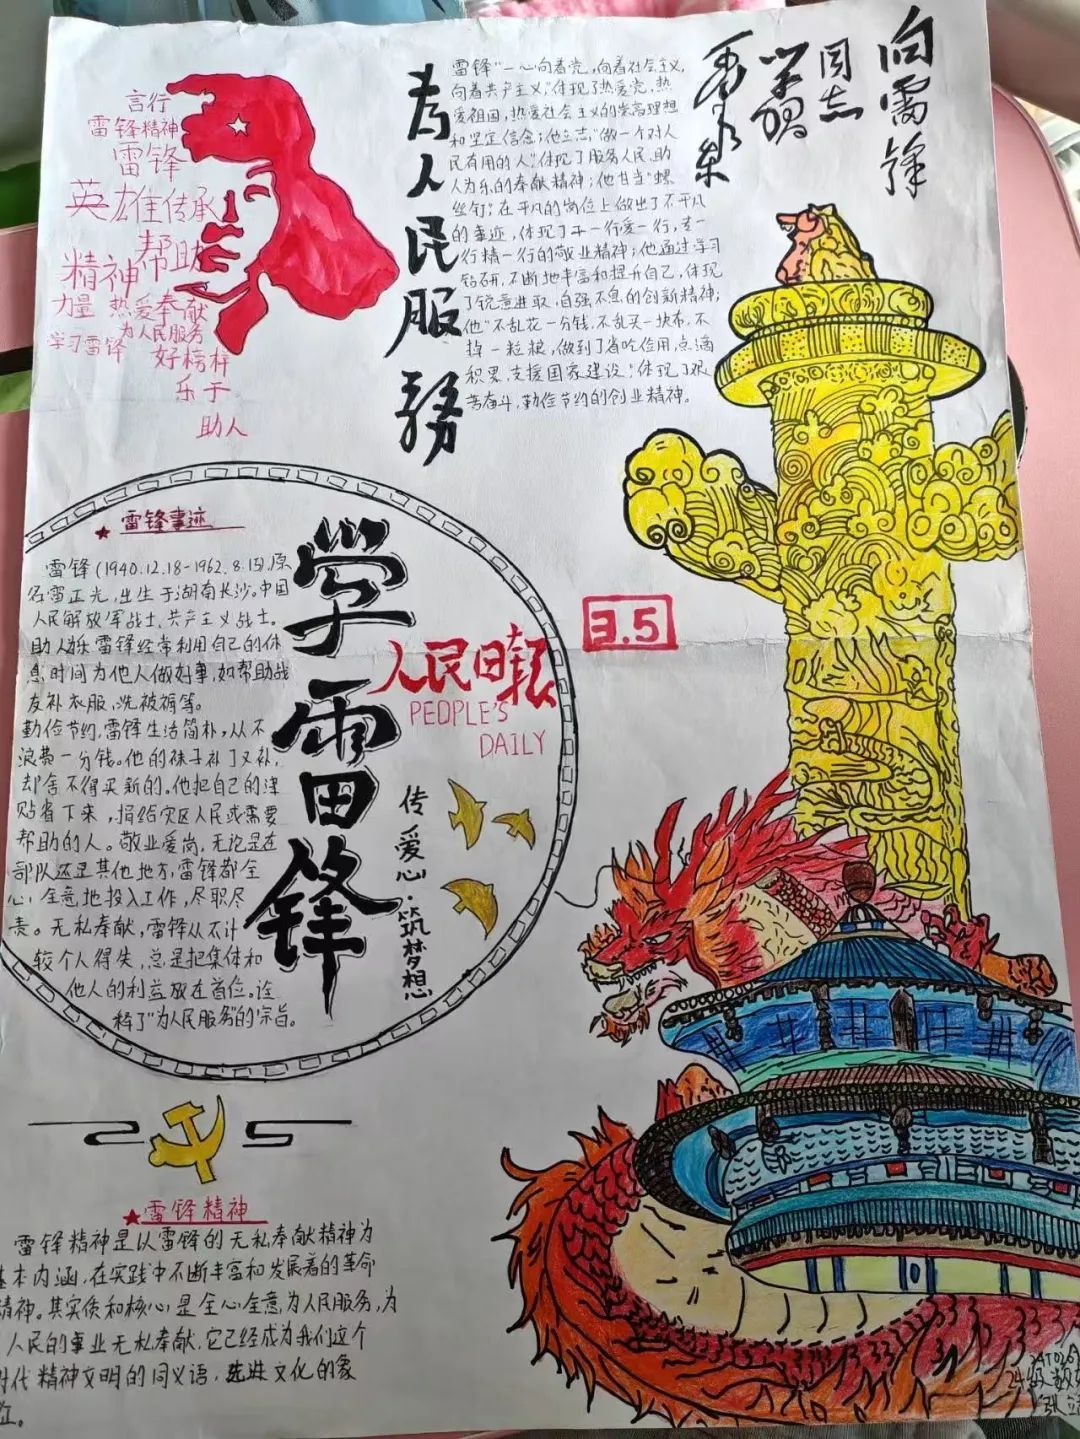 向雷锋
同志
学习
毛泽东
为人民服务
雷锋"一心向着党,向着社会主义,
向着共产主义,"体现了热爱党,热
爱祖国,热爱社会主义的崇高理想
和坚定信念;他立志,"做一个对人
民有用的人",体现了服务人民、助
人为乐的奉献精神;他甘当"螺
丝钉",在平凡的岗位上做出了不平凡
的事迹,体现了干一行爱一行,专一
行精一行的敬业精神;他通过学习
钻研,不断地丰富和提升自己,体现
了锐意进取,自强不息的创新精神;
他"不乱花一分钱,不乱买一块布,不
掉一粒粮,做到了省吃俭用,点滴
积累,支援国家建设;体现了艰
苦奋斗,勤俭节约的创业精神。
言行
雷锋精神
雷锋
英雄传承
精神 帮助
力量 热爱奉献
为人民服务
学习雷锋 好榜样
乐于
助人
★雷锋事迹
雷锋(1940.12.18-1962.8.15),原
名雷正光,出生于湖南长沙。中国
人民解放军战士、共产主义战士。
助人为乐雷锋经常利用自己的休
息时间为他人做好事,如帮助战
友补衣服,洗被褥等。
勤俭节约,雷锋生活简朴,从不
浪费一分钱。他的袜子补了又补,
却舍不得买新的。他把自己的津
贴省下来,捐给灾区人民或需要
帮助的人。敬业爱岗,无论是在
部队还是其他地方,雷锋都全
心全意地投入工作,尽职尽
责。无私奉献,雷锋从不计
较个人得失,总是把集体和
他人的利益放在首位。诠
释了"为人民服务"的宗旨。
学雷锋
人民日报
PEOPLE'S
DAILY
3.5
传爱心·筑梦想
★雷锋精神
雷锋精神是以雷锋的无私奉献精神为
基本内涵,在实践中不断丰富和发展着的革命
精神。其实质和核心是全心全意为人民服务,为
人民的事业无私奉献,它已经成为我们这个
时代精神文明的同义语,先进文化的象
征。
24级数